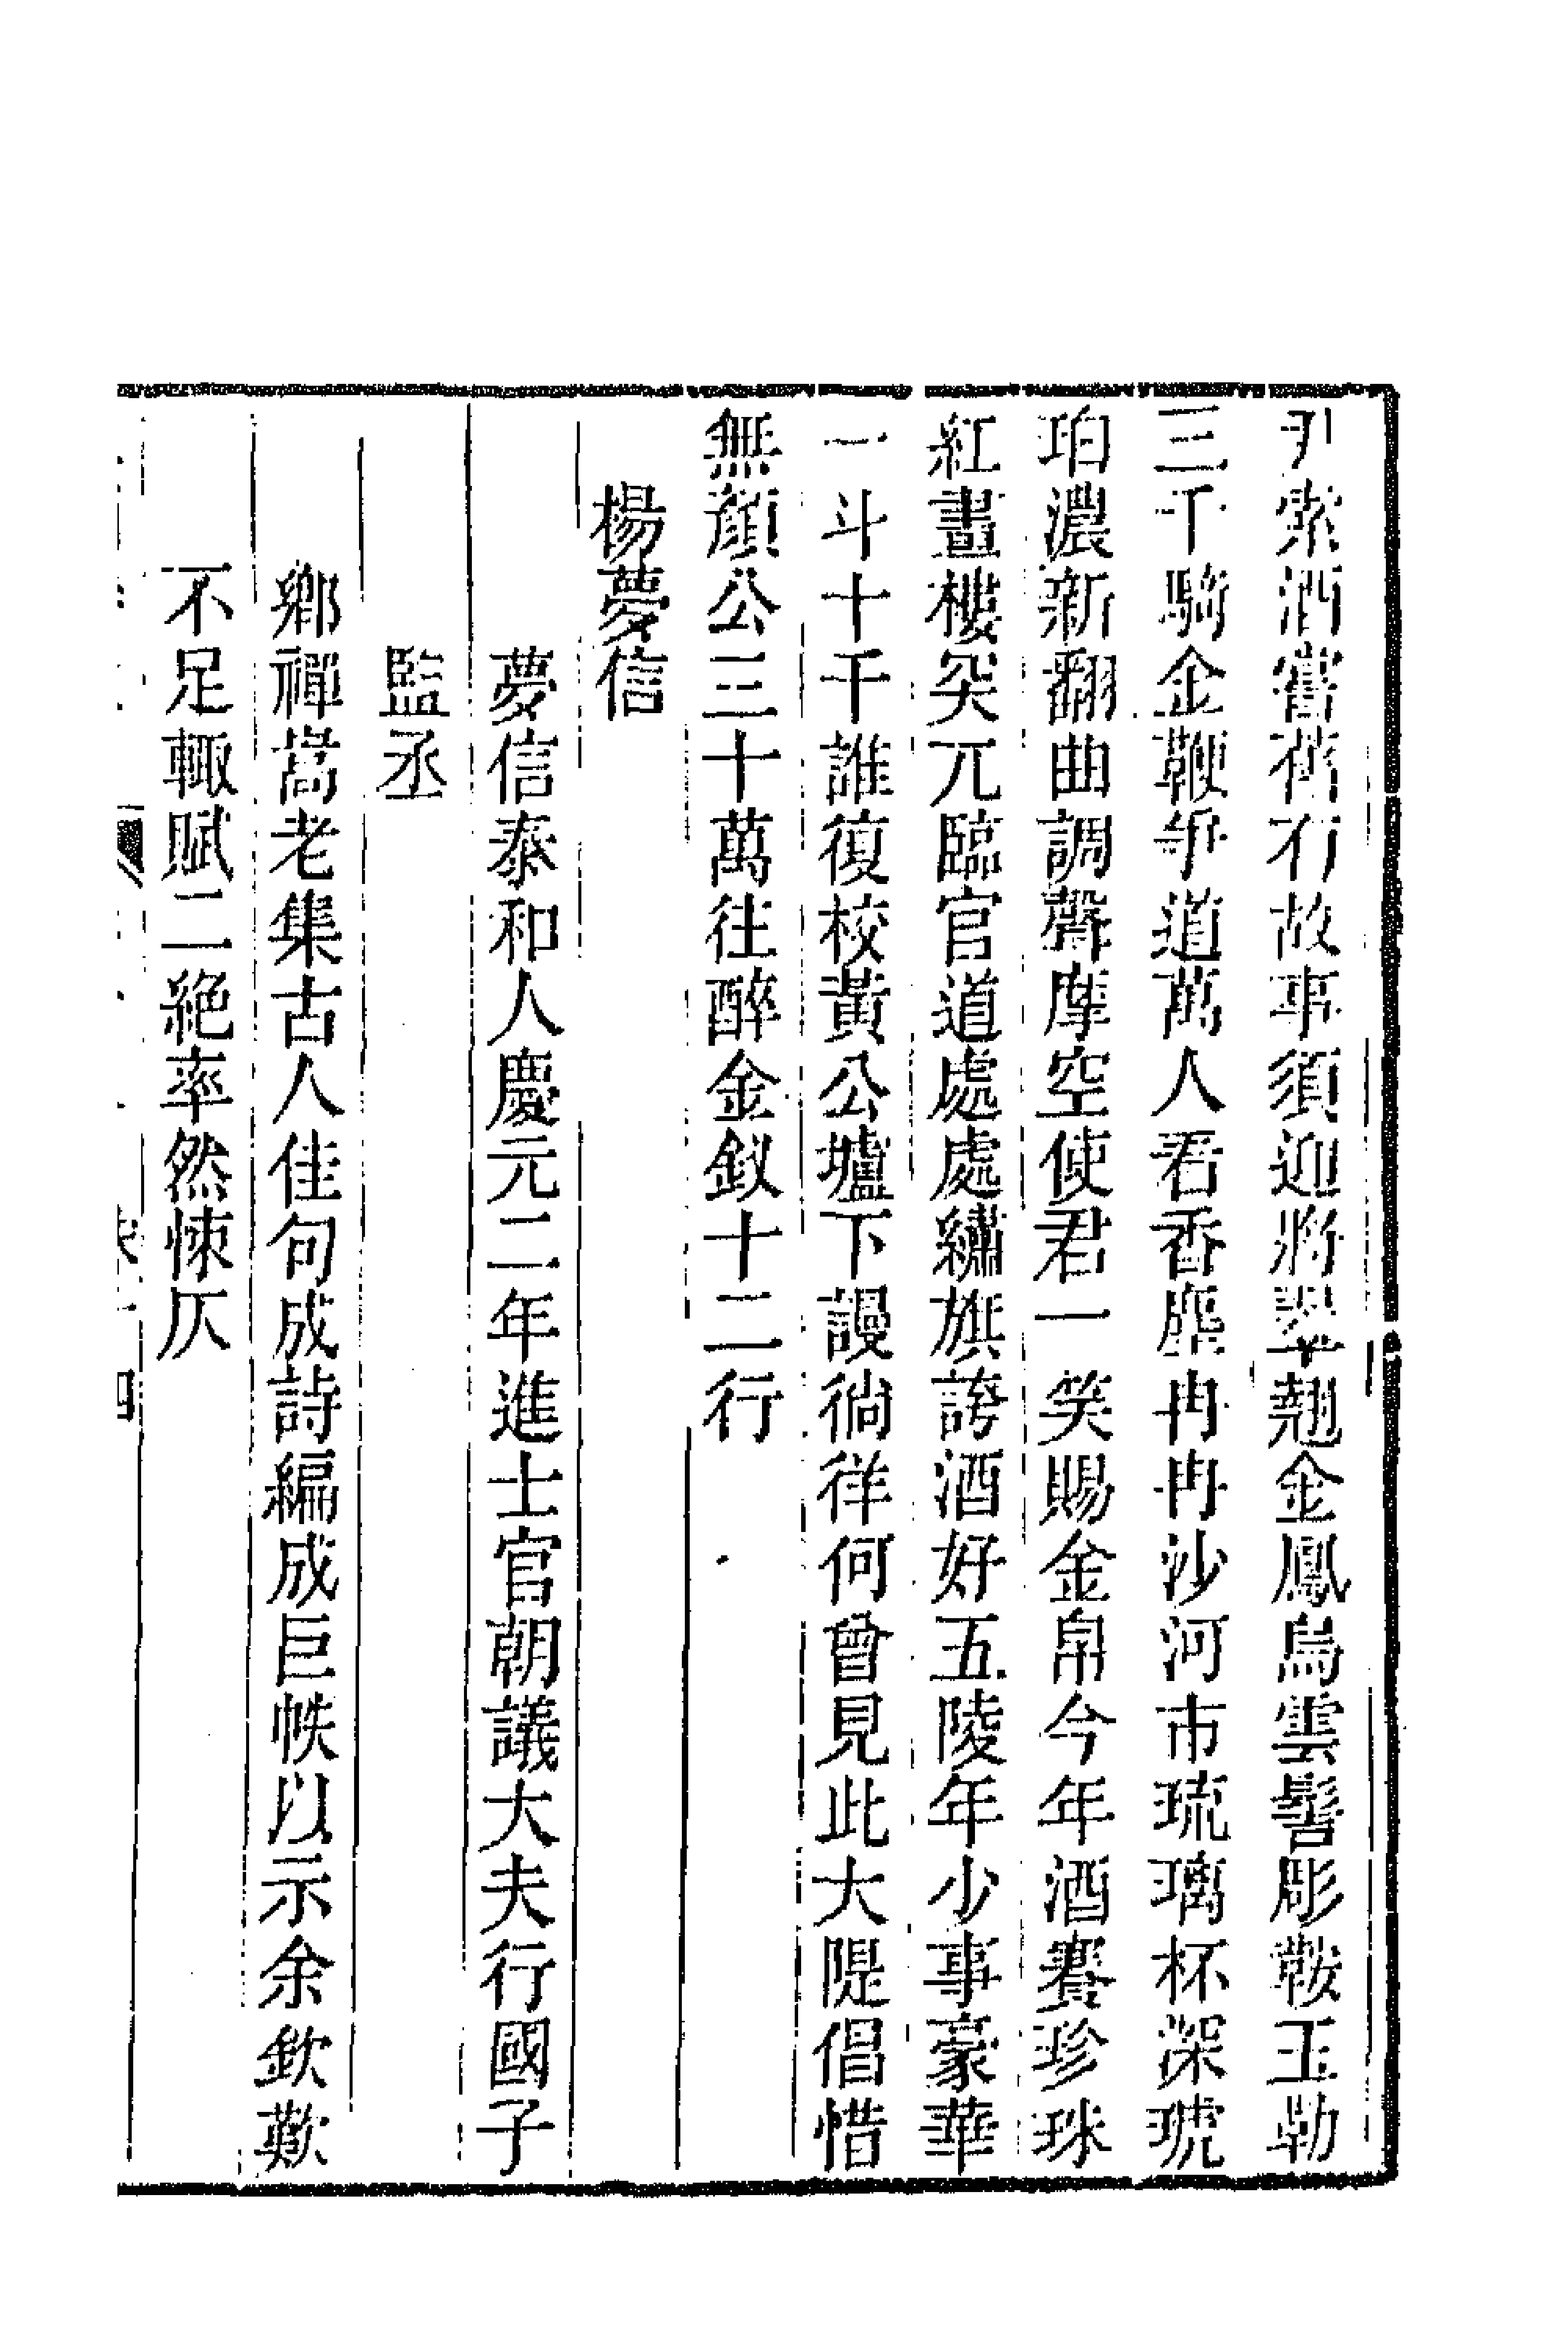 尹索酒嘗舊有故事須迎將翠翹金鳳烏雲髻彫鞍玉勒
三千騎金鞭爭道萬人看香塵冉冉沙河市琉璃杯深琥
珀濃新翻曲調聲摩空使君一笑賜金帛今年酒賽珍珠
紅畫樓突兀臨官道處處繡旗誇酒好五陵年少事豪華
一斗十千誰復校黃公壚下謾徜徉何曾見此大隄倡惜
無顏公三十萬往醉金釵十二行
楊夢信
夢信泰和人慶元二年進士官朝議大夫行國子
監丞
鄉禪嵩老集古人佳句成詩編成巨帙以示余欽歎
不足輙賦二絕率然悚仄